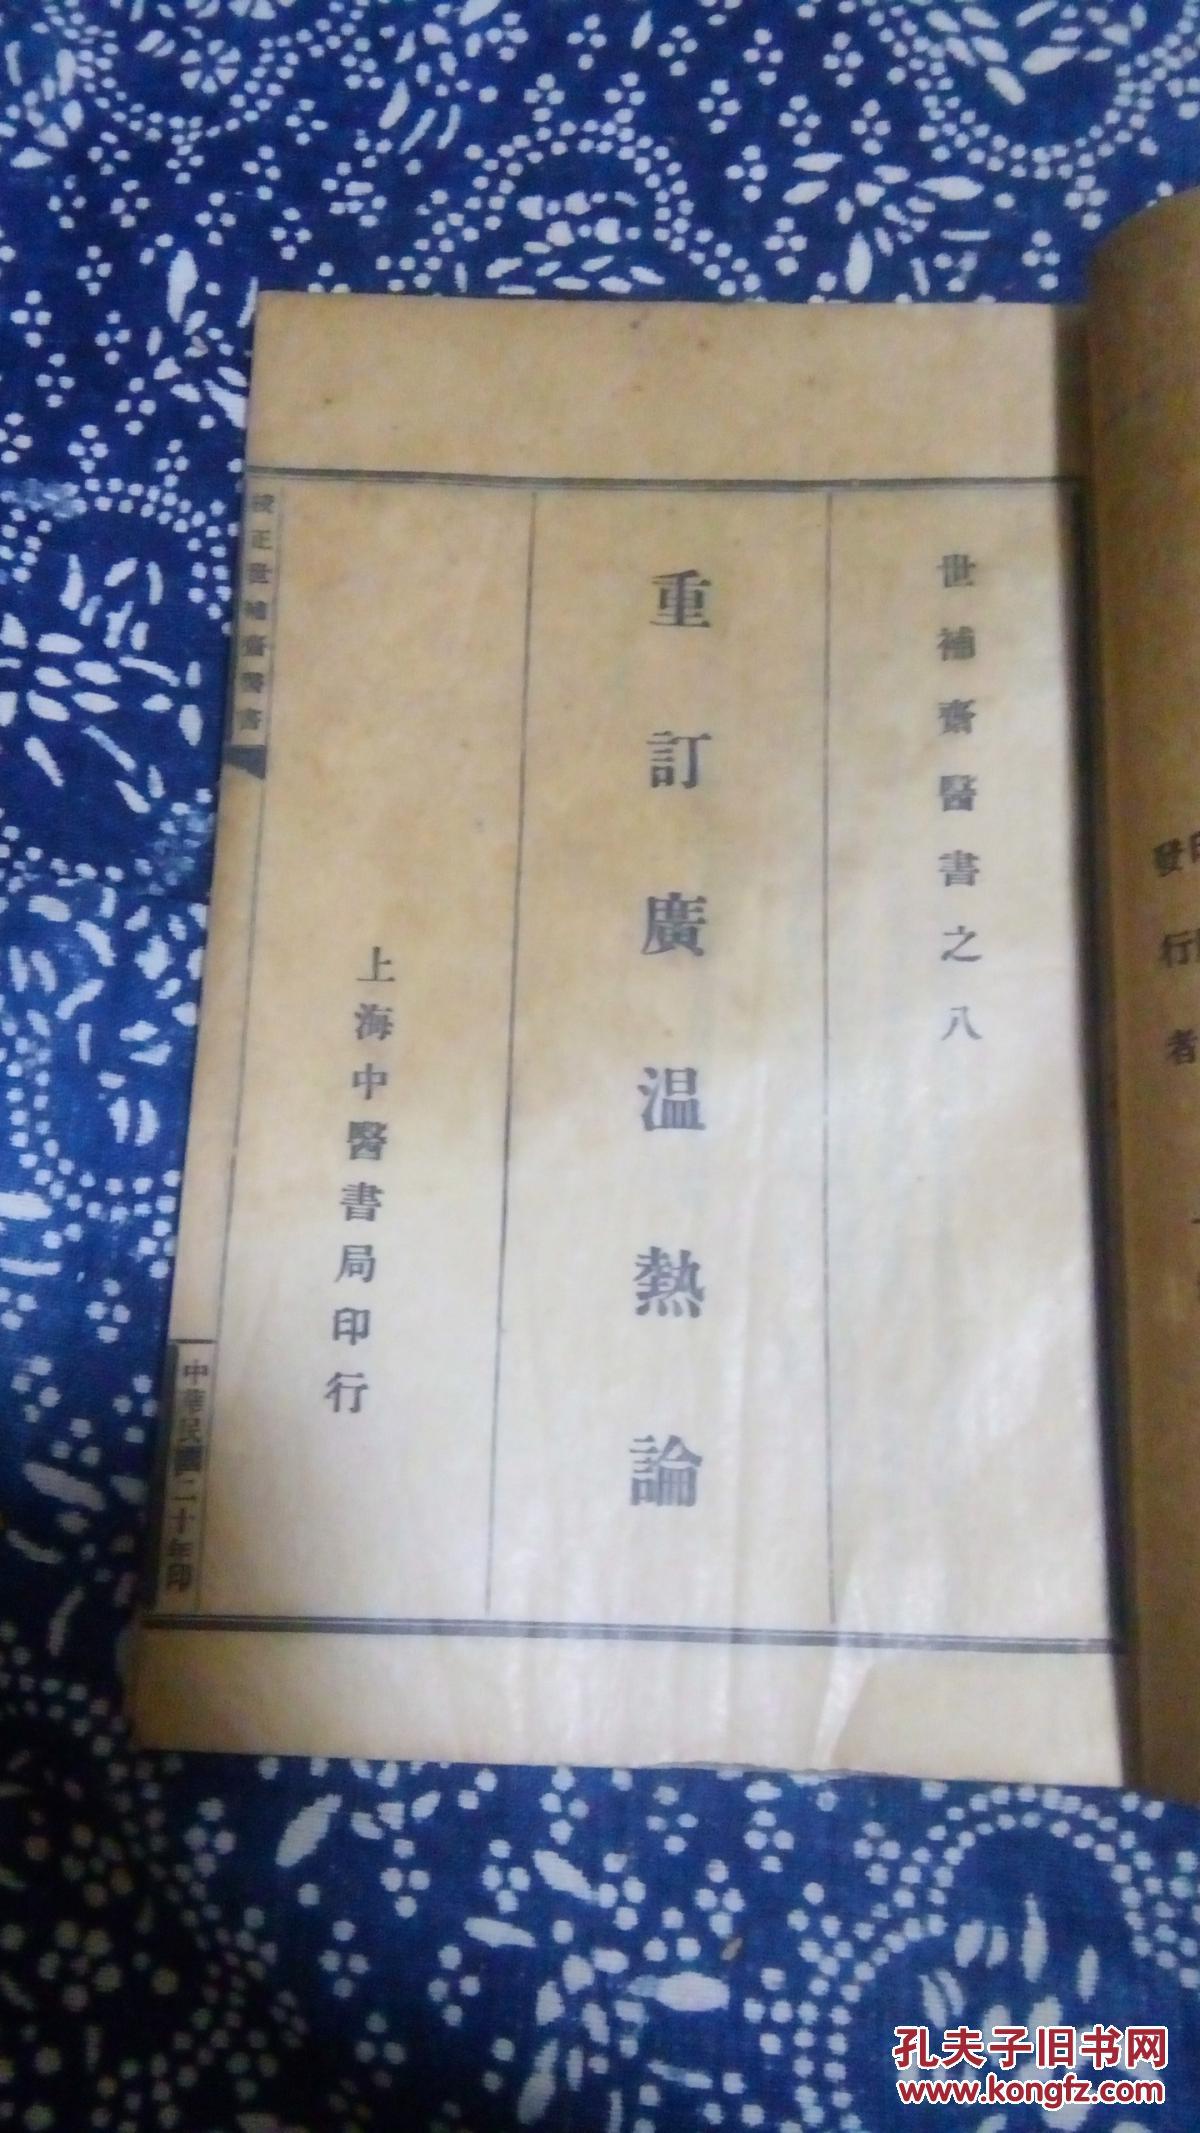 世補齋醫書之八
重訂廣温熱論
上海中醫書局印行
校正世補齋醫書
中華民國二十年印
發行者
孔夫子旧书网
www.kongfz.com